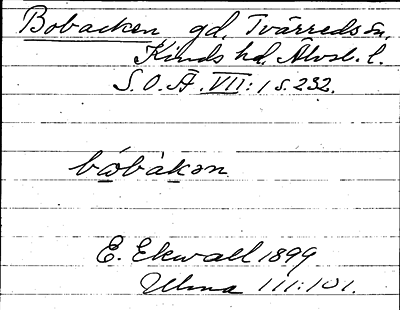 Bobacken gd, Tvärreds sn,
Kinds hd, Älvsb. l.
S.O.Ä. VII:1 s. 232.
bo̱ba̱kən
E. Ekwall 1899
Ulma 111:101.